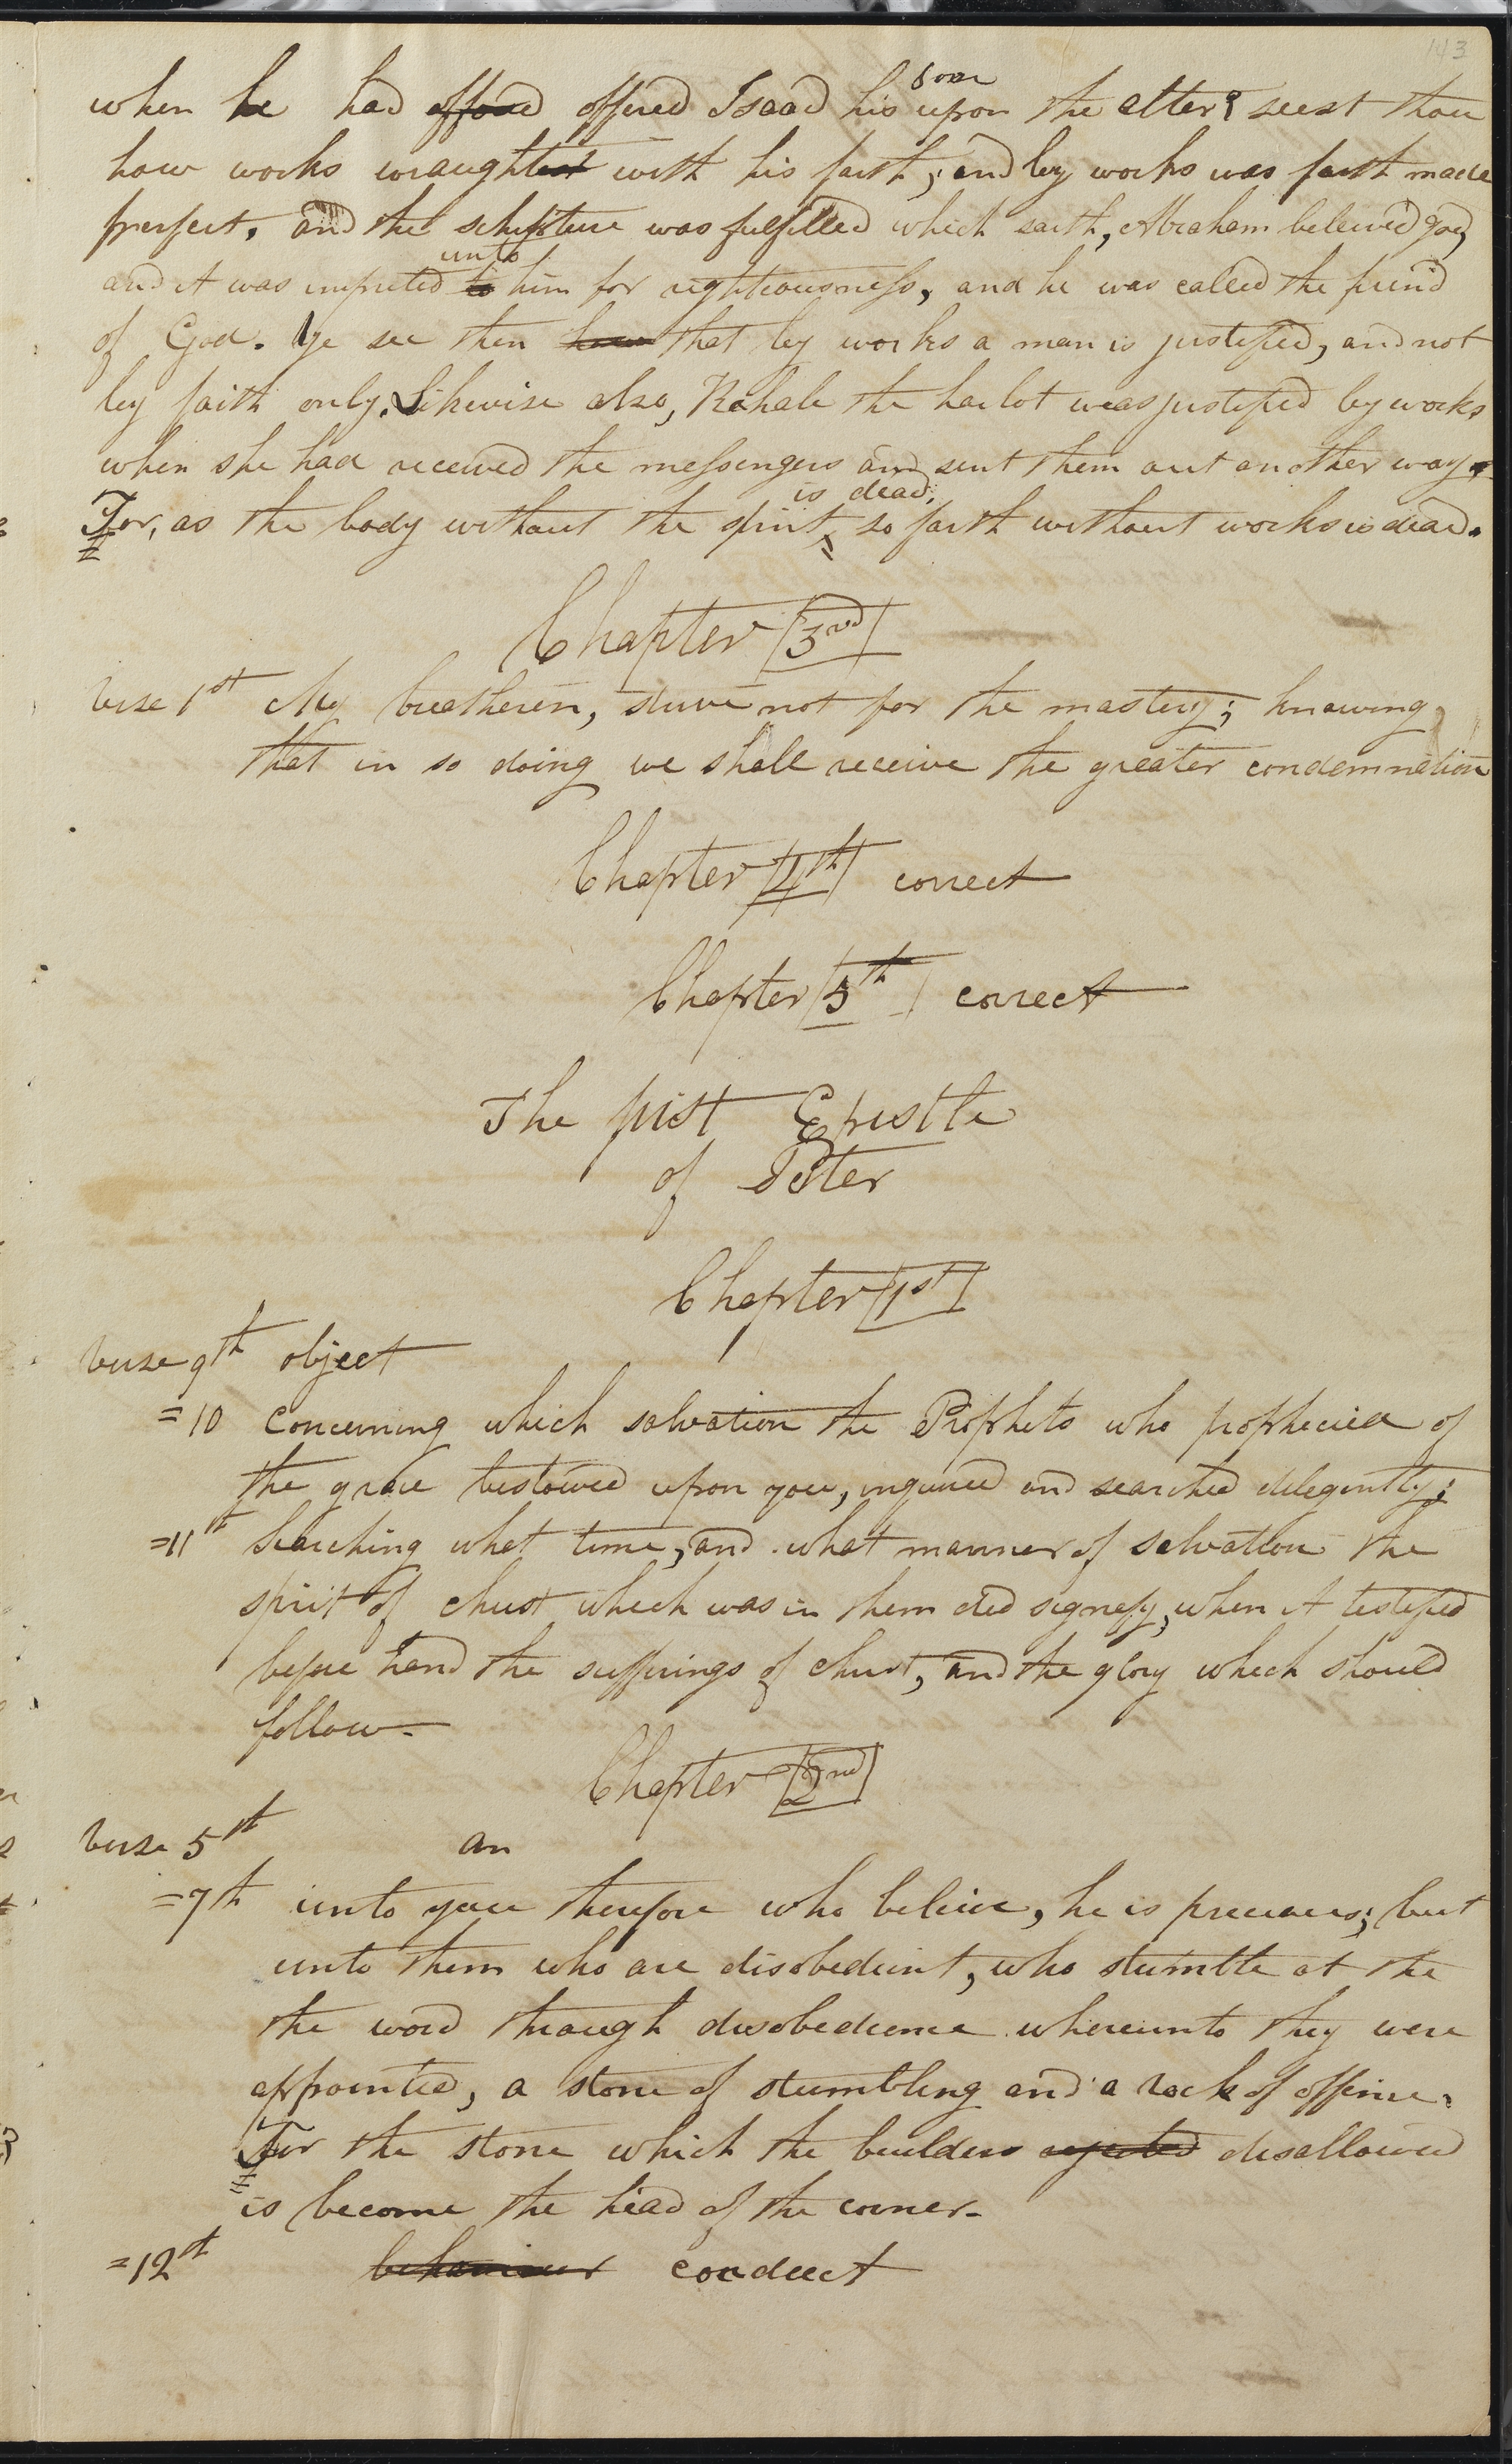 143
son
when he had offored offered Isaac his upon the alter? seest thou
how works wraughtest with his faith, and by works was faith made
prefect. and the schripture was fulfilled which saith, Abraham beleived god,
unto
and it was imputed to him for righteousness, and he was called the freind
of God. Ye see then how that by works a man is justified, and not
by faith only. Likewise also, Rahab the harlot was justified by works
when she had received the messengers and sent them out another way.
is dead,
For, as the body without the spirit so faith without works is dead.
Chapter 3rd
verse 1st My breatheren, strive not for the mastery; knowing
that in so doing we shall receive the greater condemnation
Chapter 4th correct
Chapter 5th correct
The first Epistle
of Peter
Chapter 1st
verse 9th object
=10 concerning which salvation the Prophets who prophecied of
the grace bestowed upon you, inquired and searched delegently;
=11th Searching what time, and what manner of salvation the
spirit of christ which was in them did signefy, when it testified
before hand the sufferings of christ, and the glory which should
follow-
Chapter 2nd
verse 5th an
=7th unto you therefore who believe, he is precious; but
unto them who are disobedient, who stumble at the
the word through disobedience whereunto they were
appointed, a stone of stumbling and a rock of offence.
For the stone which the builders rejected disallowed
is become the head of the corner-
=12th behaviour conduct